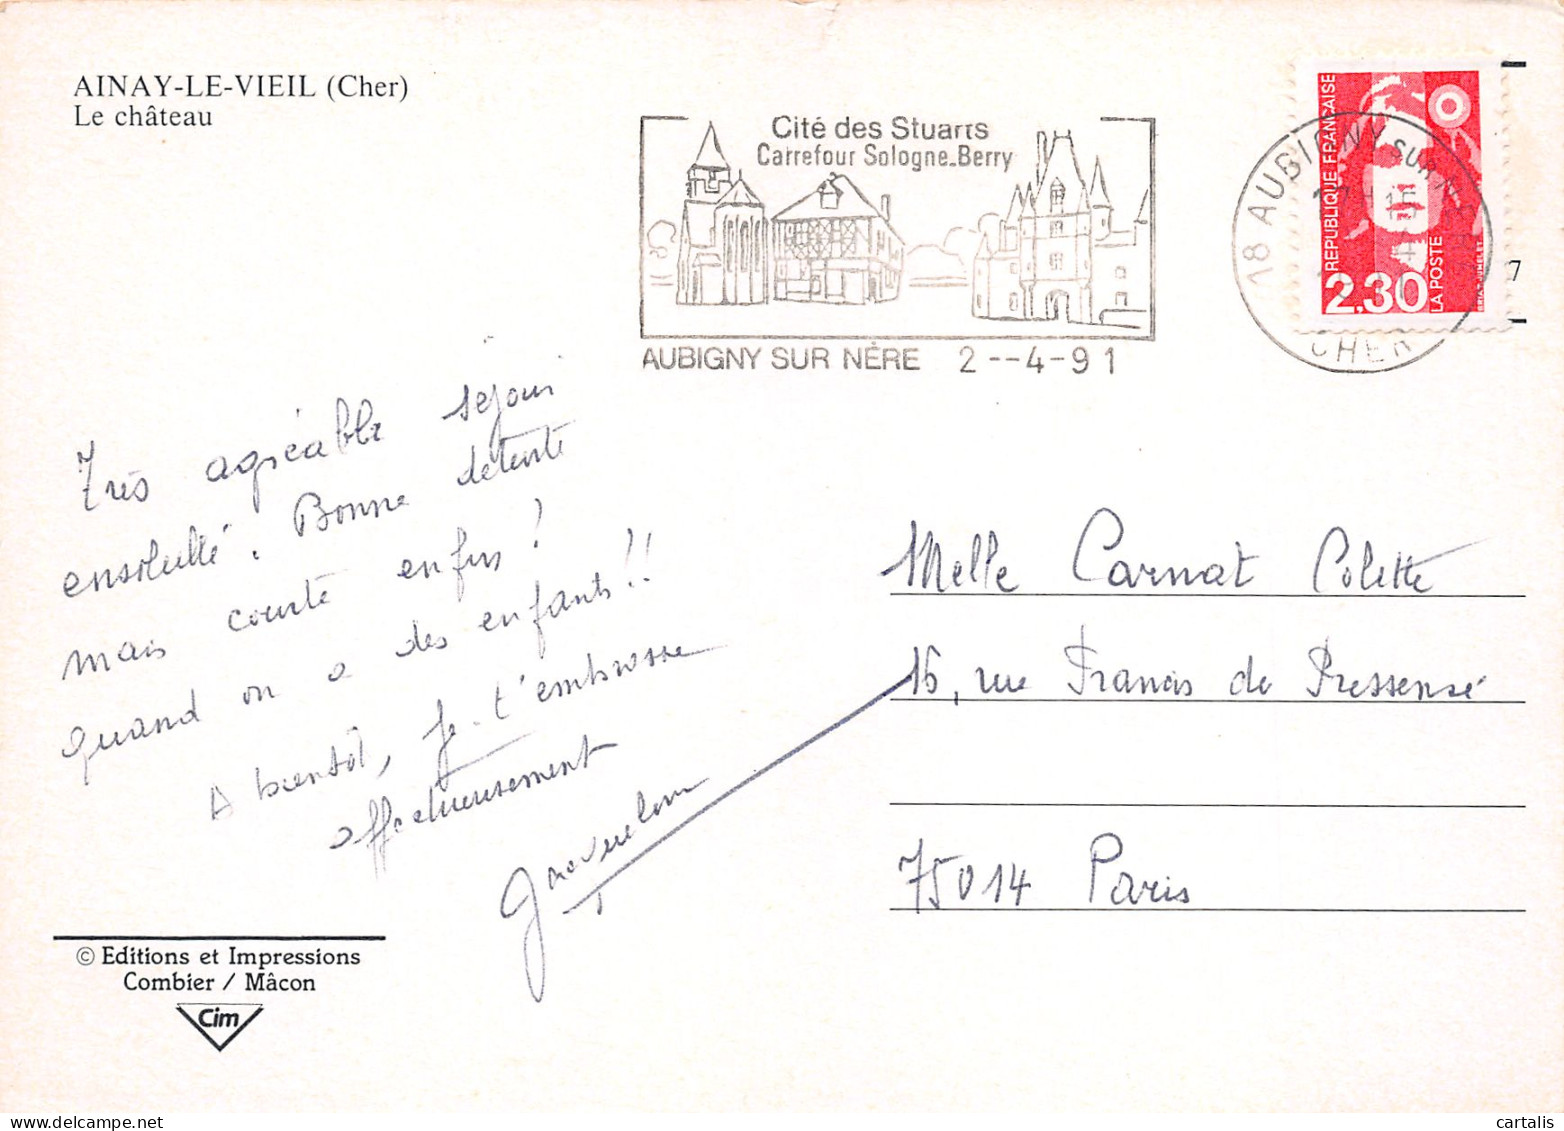 AINAY-LE-VIEIL (Cher)
Le château
Cité des Stuarts
Carrefour Sologne-Berry
AUBIGNY SUR NÈRE 2--4-91
18 AUBIGNY SUR NERE
CHER
REPUBLIQUE FRANÇAISE
2,30
LA POSTE
7
Très agréable séjour
ensoleillé. Bonne détente
mais courte enfin?
quand on a des enfants!!
A bientôt, je t'embrasse
affectueusement
Melle Carnat Colette
16, rue Francis de Pressensé
75014 Paris
© Editions et Impressions
Combier / Mâcon
Cim
cartalis